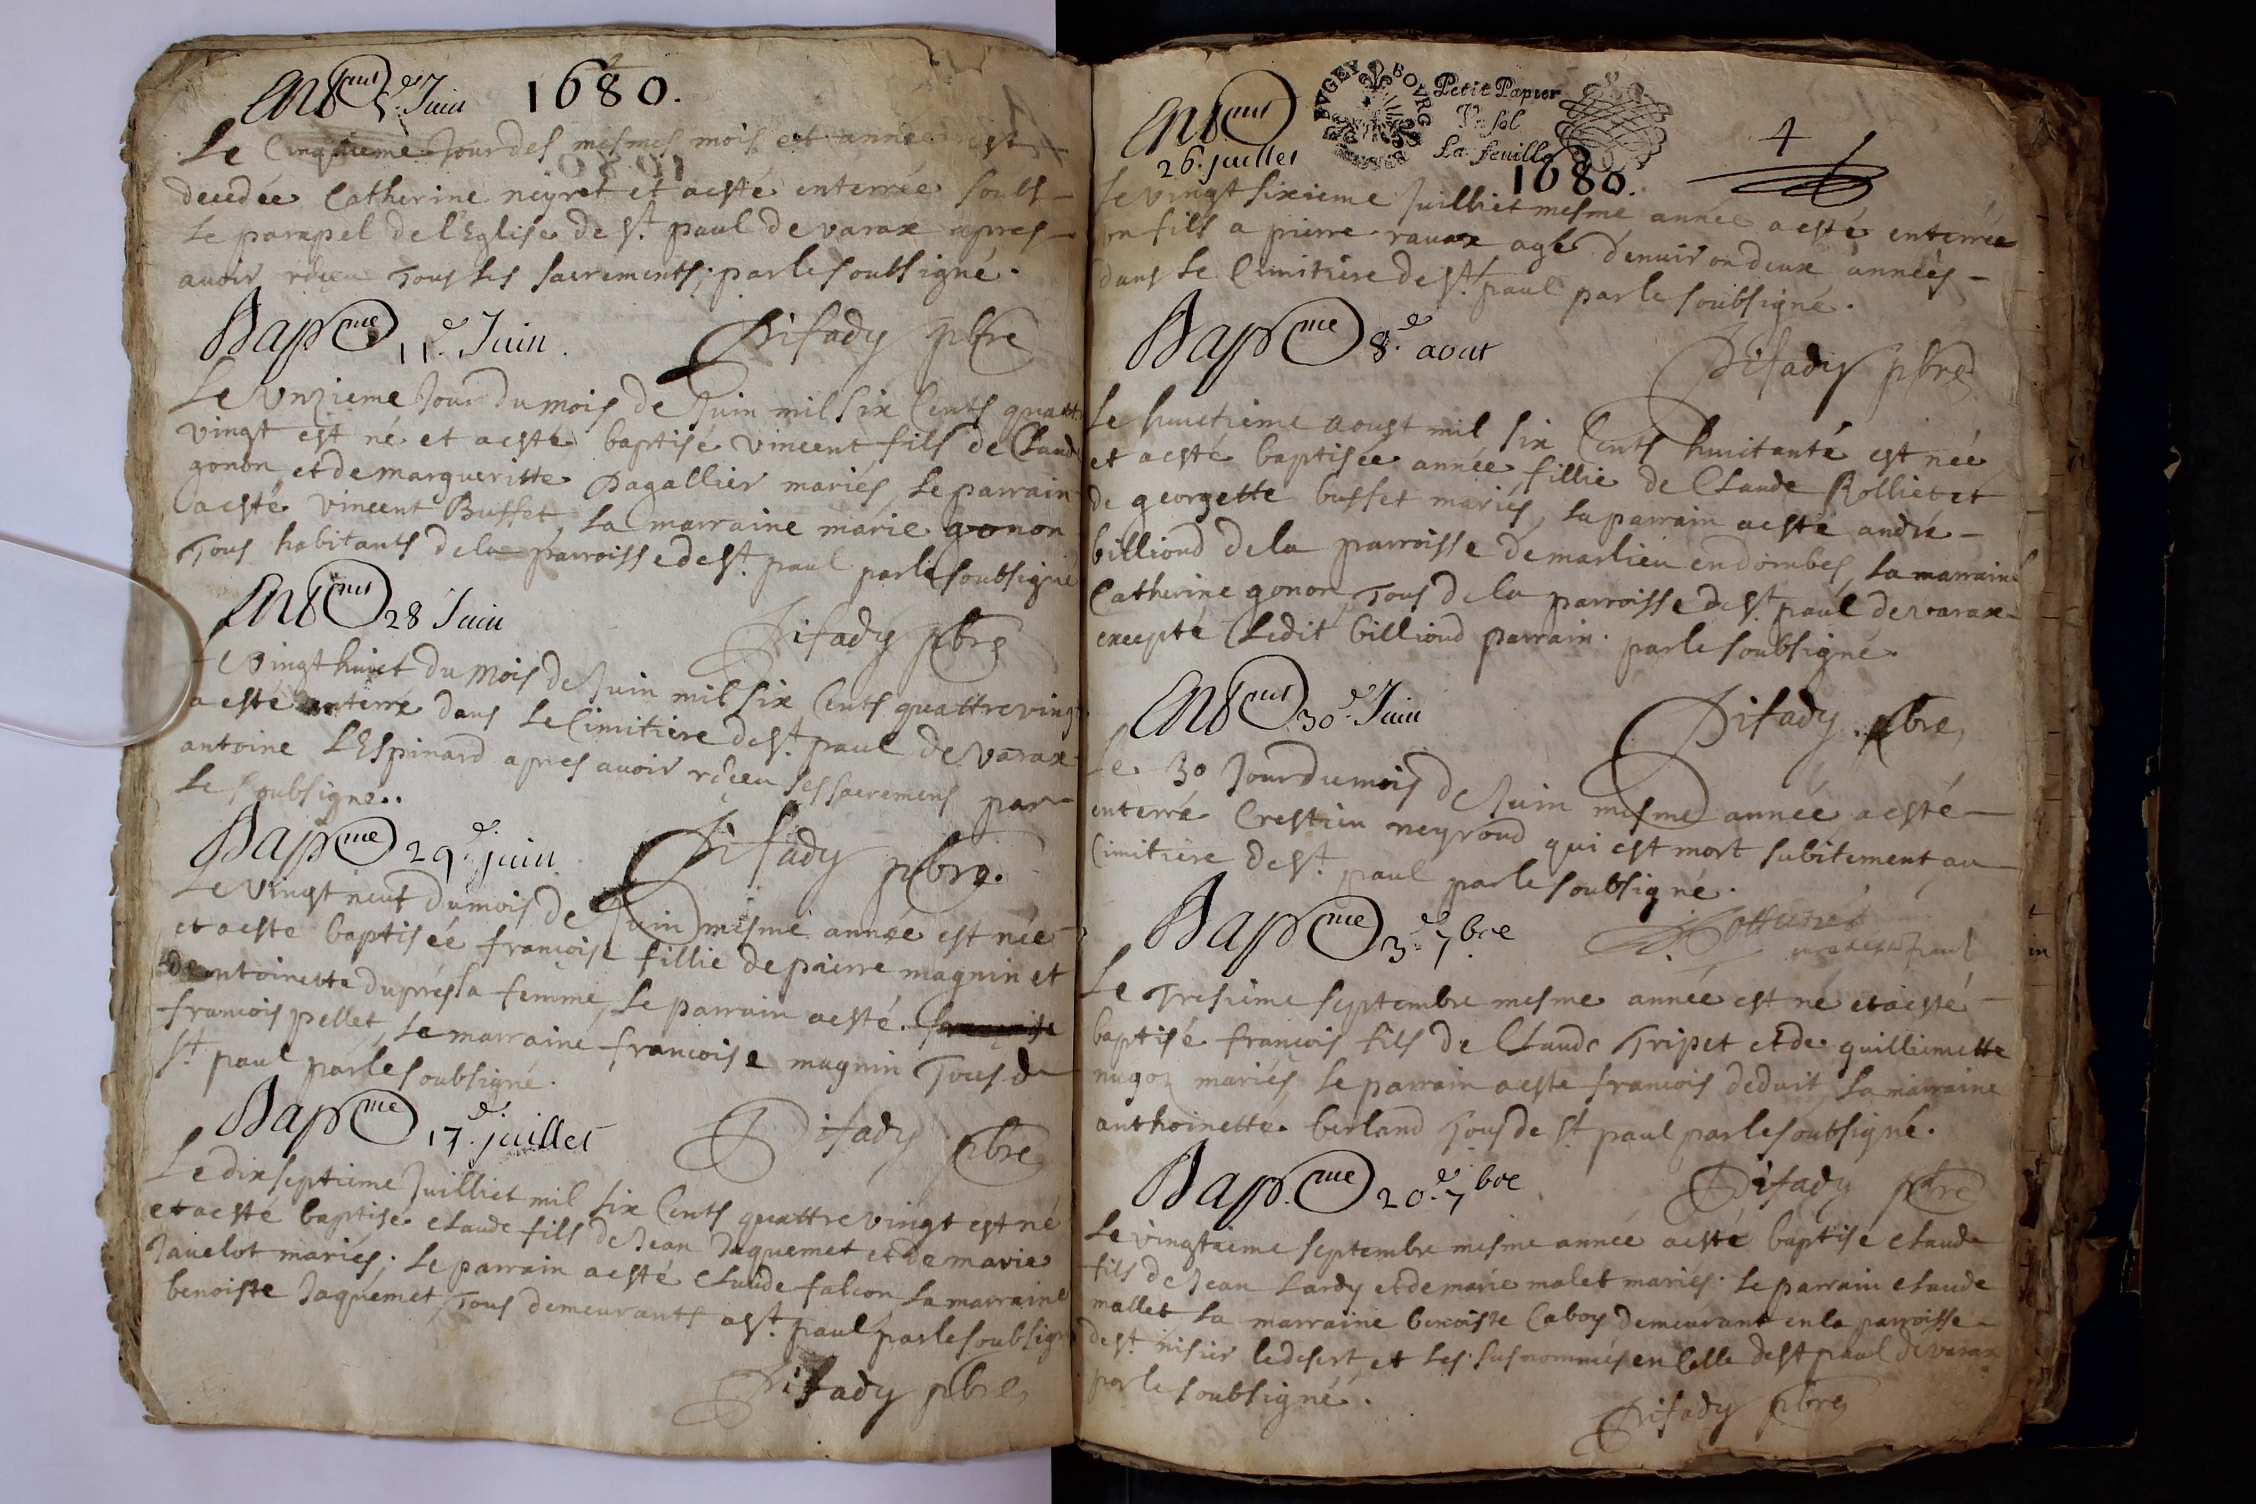 Ent.ment 5.e Juin 1680.
Le Cinquieme Jour des mesmes mois et année est
decedée Catherine neyret et a esté enterrée soubs
le parapel de l'Eglise de St. paul de varax apres
avoir reçeu Tous les sacrements, par le soubsigné.
Bap.me 11.e Juin.
Difady pbre
Le Unzieme Jour du mois de Juin mil six Cents quattre
vingt est né et a esté baptisé vincent fils de Claude
gonon et de margueritte Pagallier mariés, le parrain
a esté vincent Buffet, la marraine marie gonon
Tous habitants de la parroisse de St. paul par le soubsigné
Ent.ment 28 Juin
Difady pbre
Le Vingt huict du mois de Juin mil six Cents quattre vingt
a esté enterré dans le Cimitiere de St. paul de varax
antoine L'Espinard apres avoir reçeu ses sacremens par
le soubsigné..
Bap.me 29.e juin
Difady pbre.
Le Vingt neuf du mois de Juin mesme année est née
et a esté baptisée françoise fillie de pierre magnin et
d'antoinette duprés sa femme, le parrain a esté
francois pellet, la marraine francoise magnin Tous de
St. paul par le soubsigné.
Bap.me 17.e juillet
Difady pbre
Le dix septieme Juilliet mil six Cents quattre vingt est né
et a esté baptisé claude fils de Jean Jaquemet et de marie
Javelot mariés; le parrain a esté claude falcon, la marraine
benoiste Jaquemet, Tous demeurants a St. paul par le soubsigné
Difady pbre
BUGEY BOURG
Petit Papier
Un sol
La feuille
4
Ent.ment
26. juillet
1680.
Le vingt sixieme Juilliet mesme année a esté enterrée
un fils a pierre ravax agé d'environ deux années
dans le Cimitiere de St. paul par le soubsigné.
Bap.me 8.e aout
Difady pbre
Le huictieme aoust mil six Cents huitante est née
et a esté baptisée année fillie de Claude Rolliet et
de georgette buffet mariés, la parrain a esté andré
billioud de la parroisse de marlieu en dombes, la marraine
Catherine gonon, Tous de la parroisse de St. paul de varax
excepté Ledit billioud parrain. par le soubsigné.
Ent.ment 30.e Juin
Difady pbre
Le 30 Jour du mois de Juin mesme année a esté
enterré Crestien neyroud qui est mort subitement au
Cimitiere de St. paul par le soubsigné.
Bap.me 3.e 7.bre
Le Tresieme septembre mesme année est né et a esté
baptisé françois fils de Claude Tripet et de guilliemette
nugoz mariés, le parrain a esté francois deduit, la marraine
anthoinette berland Tous de St paul par le soubsigné.
Bap.me 20.e 7bre
Difady pbre
Le vingtieme septembre mesme année a esté baptisé claude
fils de Jean Lardy et de marie malet mariés. Le parrain claude
mallet la marraine benoiste Caboz demeurant en la parroisse
de St. nisier le desert, et les susnommés en Celle de St paul de varax
par le soubsigné.
Difady pbre